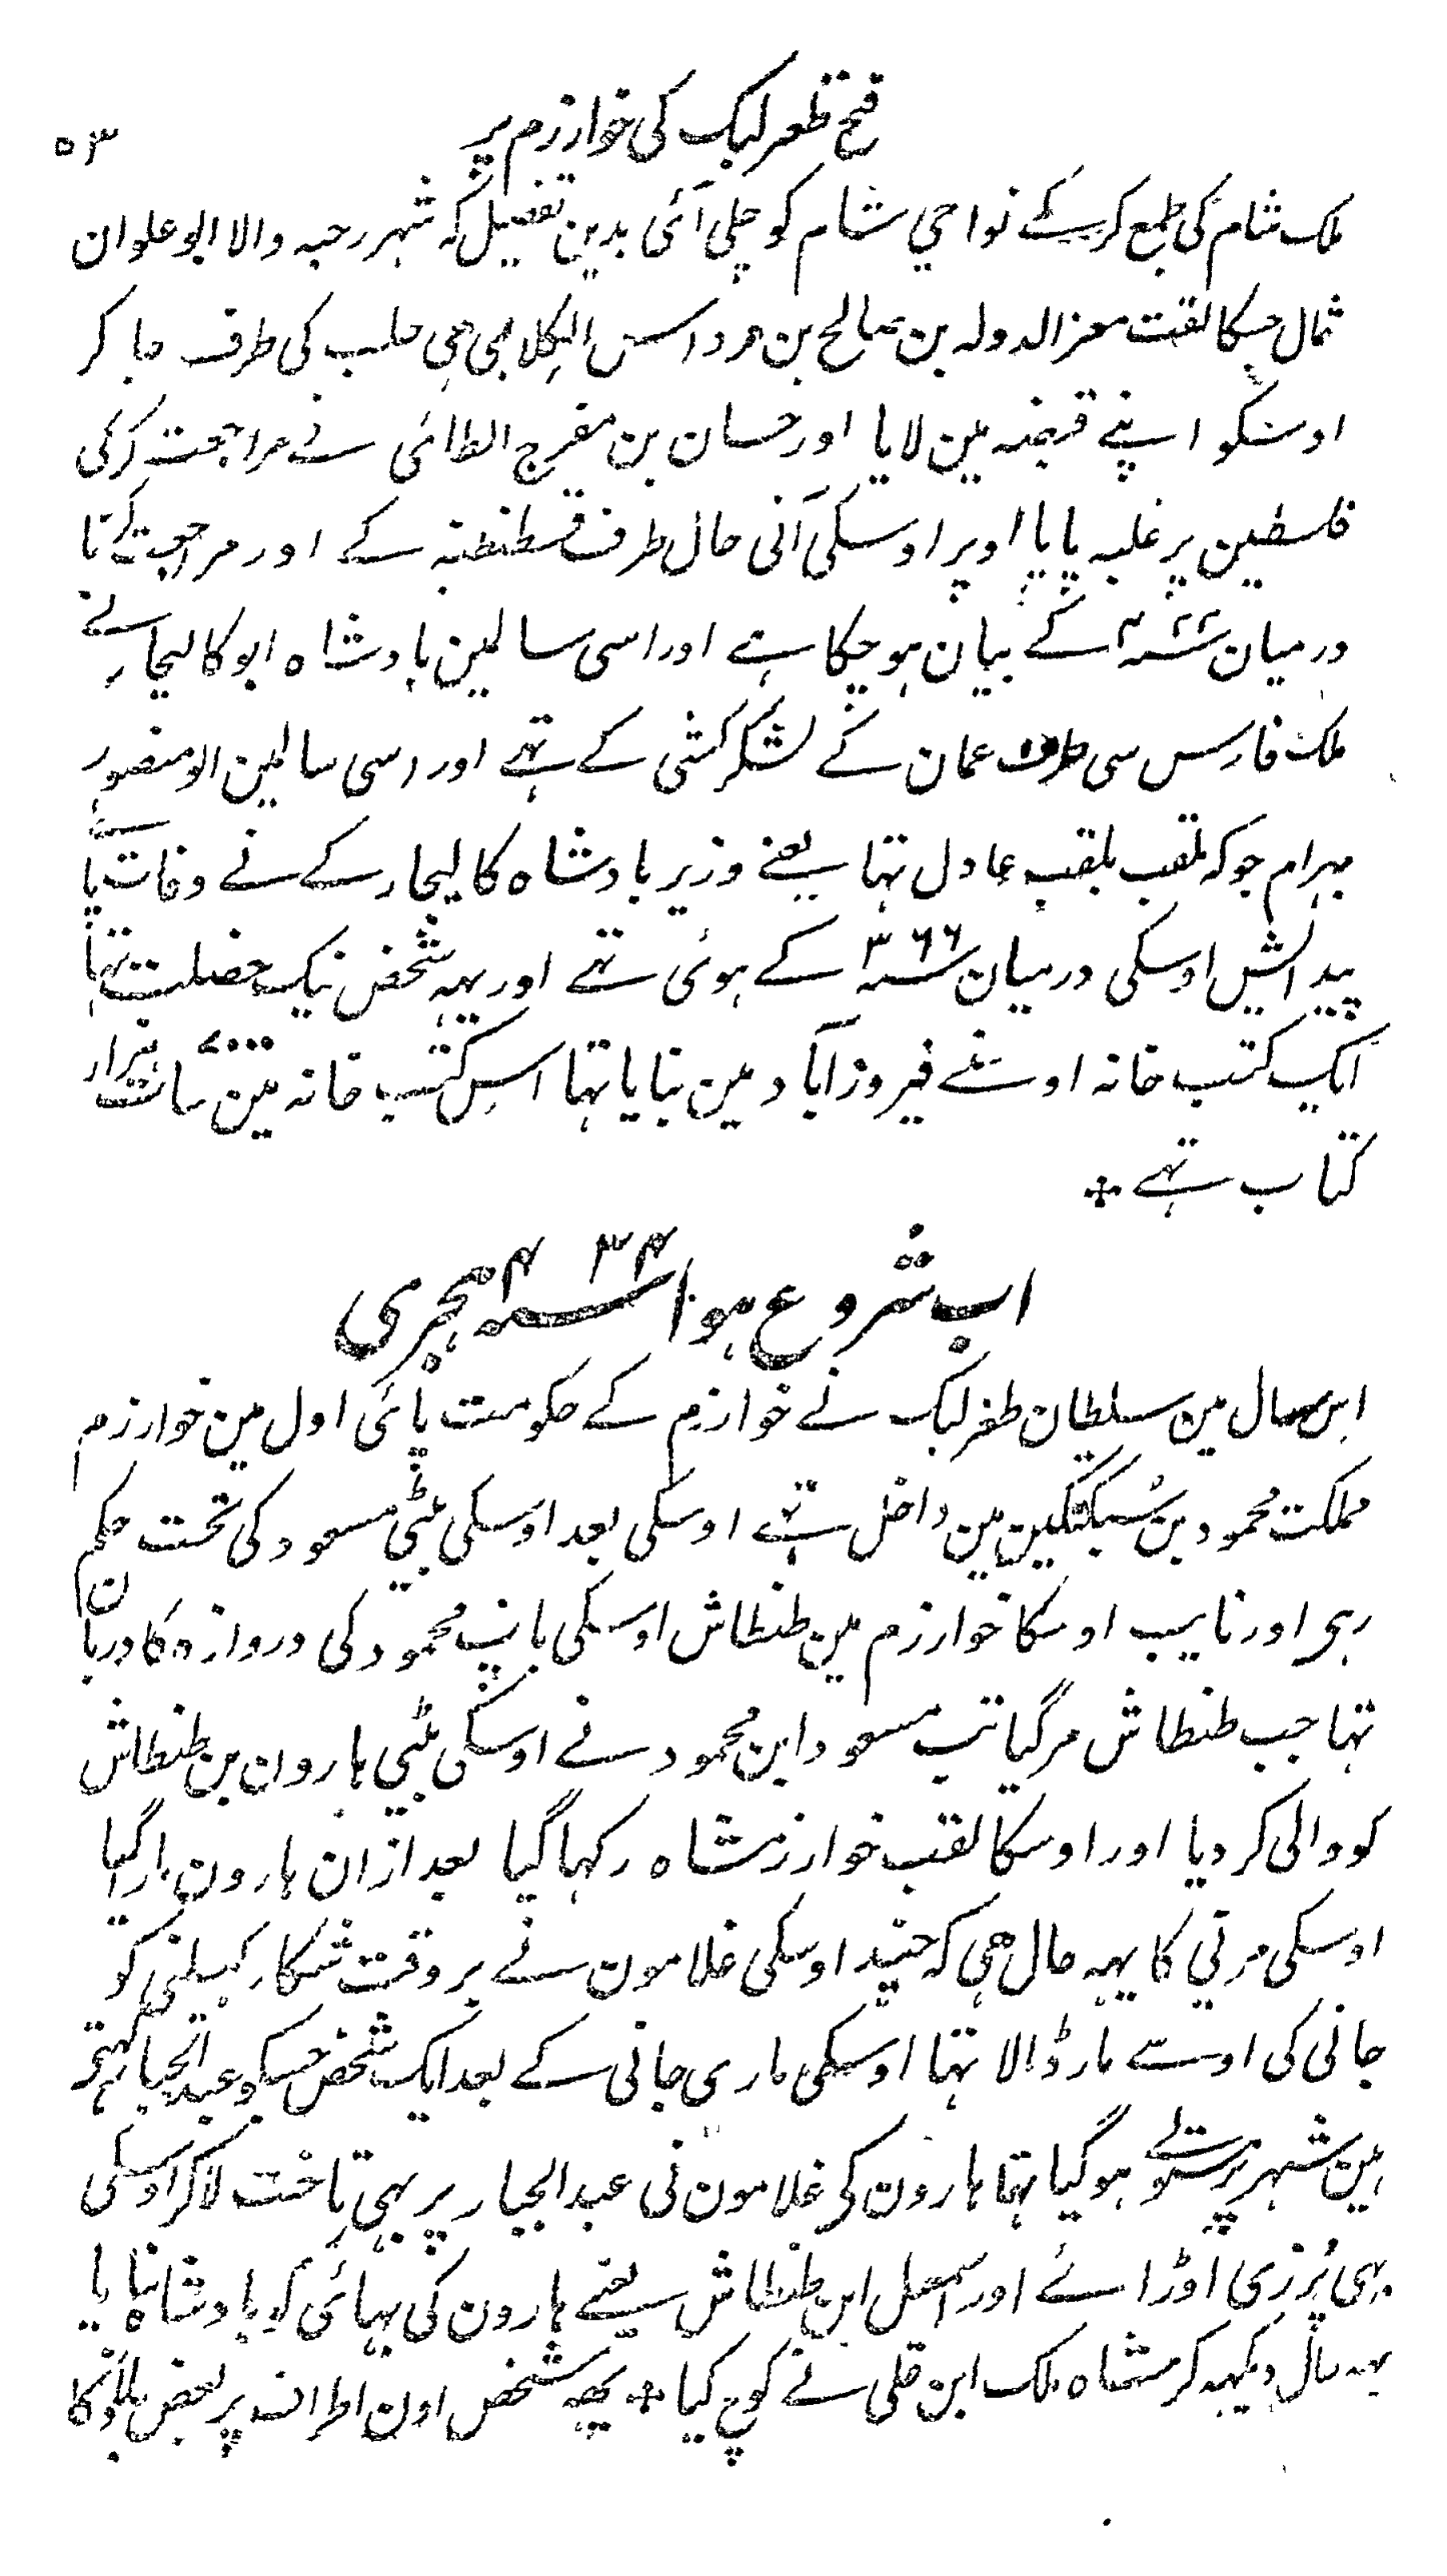 فتح طغرلبک کی خوارزم پر
٥٣
ملک شام کی طمع کرکے نواحي شام کو چلي آئی بدین تفصیل که شہر رحبه والا ابو علوان
ثمال جسکا لقب معز الدوله بن صالح بن مرداس الکلابی ہی حلب کی طرف جا کر
اوسکو اپنے قبضه مین لایا اور حسان بن مفرج الطائی نے مراجعت کرکی
فلسطین پر غلبه پایا اوپر اوسکی آنی حال طرف قسطنطنیه کے اور مراجعت کرنا
درمیان سنه ۴۲۲ کے بیان ہو چکا ہے اور اسی سالمین بادشاه ابو کالیجار نے
ملک فارس سی طرف عمان کے لشکر کشی کے تہے اور اسی سالمین ابو منصور
بہرام جو که ملقب بلقب عادل تہا یعنے وزیر بادشاه کالیجار کے نے وفات پائے
پیدایش اوسکی درمیان سنه ۳۶۶ کے ہوئی تہے اور یہه شخص نیک خصلت تہا
ایک کتب خانه اوسنے فیروز آباد مین بنایا تہا اس کتب خانه مین سات ۷۰۰۰ ہزار
کتاب تہے
اب شروع ہوا سنه ۴۳۴ ہجری
اس سال مین سلطان طغرلبک نے خوارزم کے حکومت پائی اول مین خوارزم
مملکت محمود بن سبکتگین مین داخل تہے اوسکی بعد اوسکی بیٹی مسعود کی تحت حکم
رہی اور نایب اوسکا خوارزم مین طنطاش اوسکی باپ محمود کی دروازه کا دربان
تہا جب طنطاش مرگیا تب مسعود ابن محمود نے اوسکی بیٹی ہارون بن طنطاش
کو والی کر دیا اور اوسکا لقب خوارزمشاه رکہا گیا بعد ازان ہارون مارا گیا
اوسکی مرنی کا یہه حال ہی که چند اوسکی غلامون نے بر وقت شکار کہیلنی کو
جانی کی اوسے مار ڈالا تہا اوسکی ماری جانی کے بعد ایک شخص جسکو عبد الجبار کہتی
ہین شہر پر مستولے ہوگیا تہا ہارون کی غلامون نی عبد الجبار پر بہی تاخت لاکر اوسکی
بہی پرزی اوڑائے اور اسمعیل ابن طنطاش یعنے ہارون کی بہائی کو بادشاه بنایا
یہه حال دیکہه کر شاه ملک ابن علی نے کوچ کیا یهه شخص اون اطراف پر بعض بلاد کا